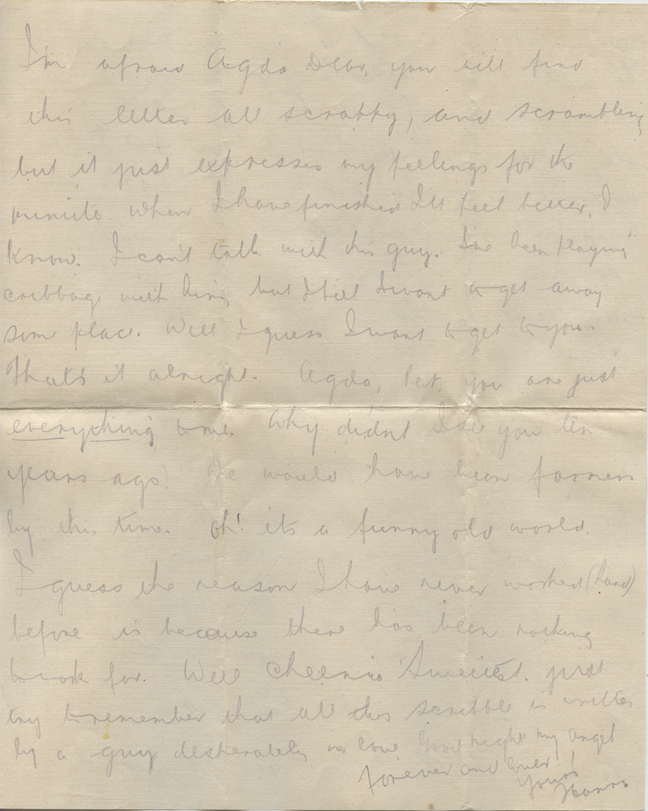 I'm afraid Agda Dear, you will find
this letter all scrappy, and scrambling
but it just expresses my feelings for the
minute. When I have finished I'll feel better, I
know. I can't talk with this guy. I've been playing
cribbage with him, but I still want to get away
some place. Well I guess I want to get to you.
That's it alright. Agda, Pet, you are just
everything to me. Why didn't I see you ten
years ago! We would have been farmers
by this time. Oh! it's a funny old world.
I guess the reason I have never worked (hard)
before is because there has been nothing
to work for. Well Cheerio Sweetest. just
try to remember that all this scribble is written
by a guy desperately in love Good night my angel
forever and ever!
Yours